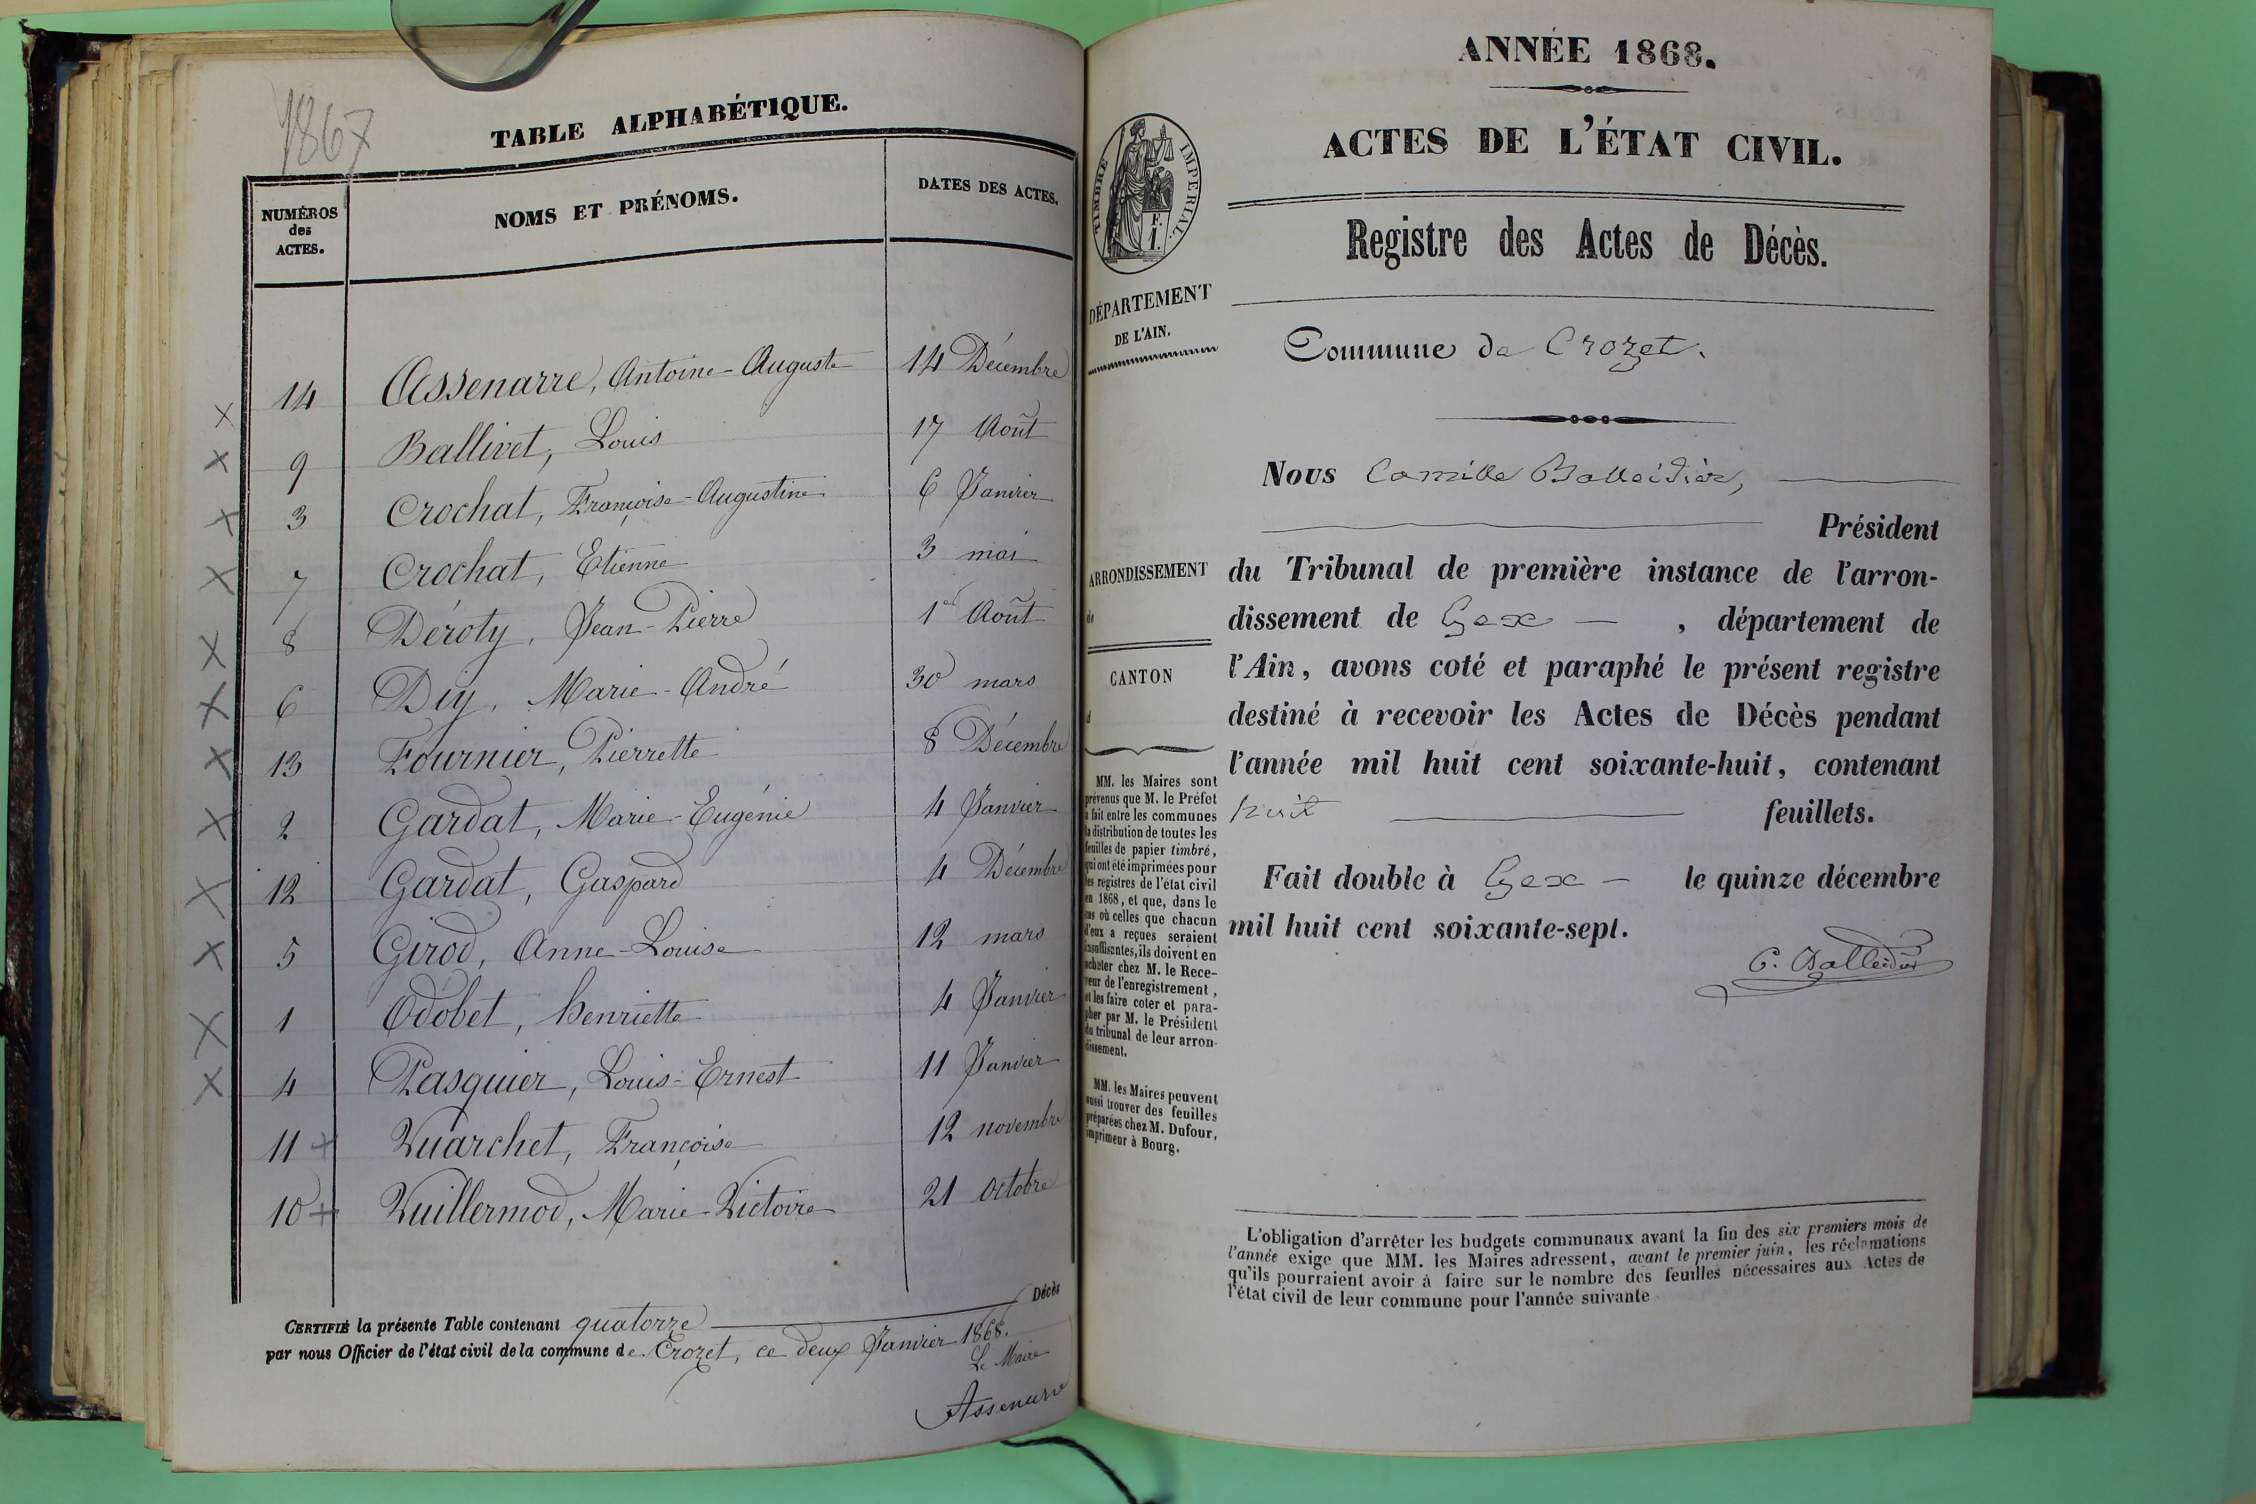 1867
TABLE ALPHABÉTIQUE.
NUMÉROS
des
ACTES.
NOMS ET PRÉNOMS.
DATES DES ACTES.
14 Assenarre, Antoine-Auguste 14 Décembre
9 Ballivet, Louis 17 Août
3 Crochat, Françoise-Augustine 6 Janvier
7 Crochat, Etienne 3 mai
8 Déroty, Jean-Pierre 1er Août
6 Diy, Marie-André 30 mars
13 Fournier, Pierrette 8 Décembre
2 Gardat, Marie-Eugénie 4 Janvier
12 Gardat, Gaspard 4 Décembre
5 Girod, Anne-Louise 12 mars
1 Odobet, henriette 4 Janvier
4 Pasquier, Louis-Ernest 11 Janvier
11 Vuarchet, Françoise 12 novembre
10 Vuillermod, Marie-Victoire 21 Octobre
CERTIFIÉ la présente Table contenant quatorze Décès
par nous Officier de l'état civil de la commune de Crozet, ce deux Janvier 1868.
Le Maire
Assenarre
ANNÉE 1868.
ACTES DE L'ÉTAT CIVIL.
TIMBRE IMPERIAL.
F.
1.
Registre des Actes de Décès.
DÉPARTEMENT
DE L'AIN.
Commune de Crozet.
Nous Camille Balleidier,
Président
ARRONDISSEMENT
de
CANTON
d
du Tribunal de première instance de l'arron-
dissement de Gex , département de
l'Ain, avons coté et paraphé le présent registre
destiné à recevoir les Actes de Décès pendant
l'année mil huit cent soixante-huit, contenant
huit feuillets.
Fait double à Gex le quinze décembre
mil huit cent soixante-sept.
C. Balleidier
MM. les Maires sont
prévenus que M. le Préfet
a fait entre les communes
la distribution de toutes les
feuilles de papier timbré,
qui ont été imprimées pour
les registres de l'état civil
en 1868, et que, dans le
cas où celles que chacun
d'eux a reçues seraient
insuffisantes, ils doivent en
acheter chez M. le Rece-
veur de l'enregistrement,
et les faire coter et para-
pher par M. le Président
du tribunal de leur arron-
dissement.
MM. les Maires peuvent
aussi trouver des feuilles
préparées chez M. Dufour,
imprimeur à Bourg.
L'obligation d'arrêter les budgets communaux avant la fin des six premiers mois de
l'année exige que MM. les Maires adressent, avant le premier juin, les réclamations
qu'ils pourraient avoir à faire sur le nombre des feuilles nécessaires aux Actes de
l'état civil de leur commune pour l'année suivante